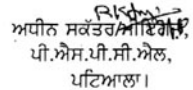 ਅਧੀਨ ਸਕੱਤਰ/
ਪੀ.ਐਸ.ਪੀ.ਸੀ.ਐਲ,
ਪਟਿਆਲਾ।